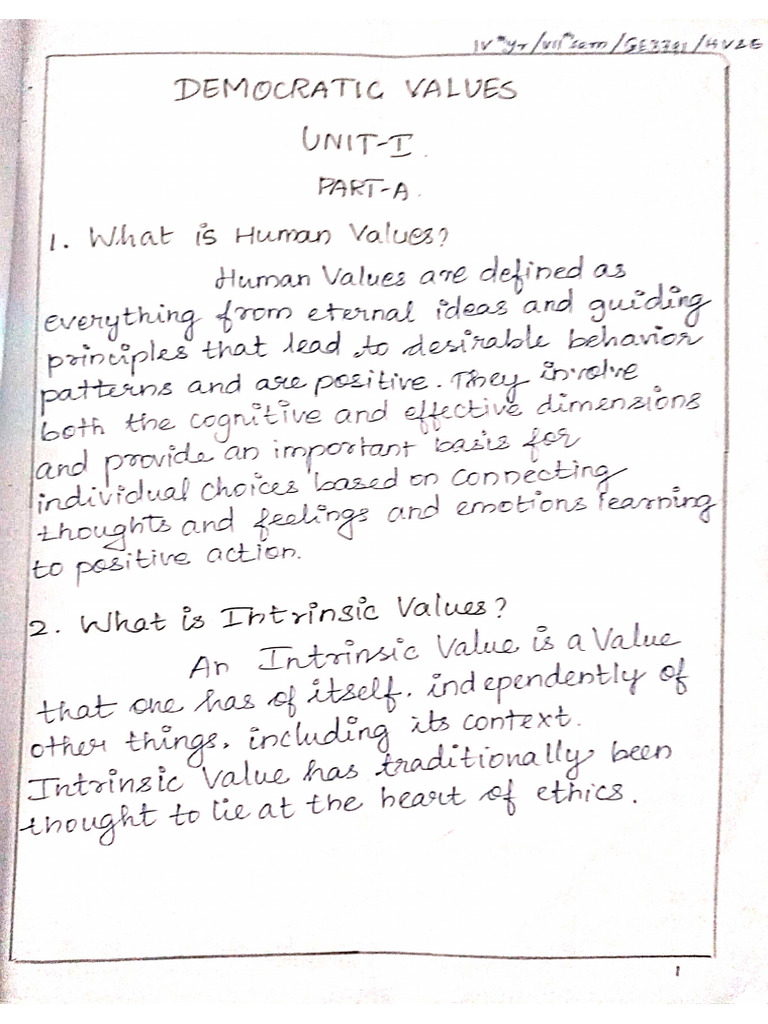 IV yr/VII sem/GE3791/HVE
DEMOCRATIC VALUES
UNIT-I.
PART-A.
1. What is Human Values?
Human Values are defined as
everything from eternal ideas and guiding
principles that lead to desirable behavior
patterns and are positive. They involve
both the cognitive and effective dimensions
and provide an important basis for
individual choices based on connecting
thoughts and feelings and emotions learning
to positive action.
2. What is Intrinsic Values?
An Intrinsic Value is a Value
that one has of itself, independently of
other things, including its context.
Intrinsic Value has traditionally been
thought to lie at the heart of ethics.
1